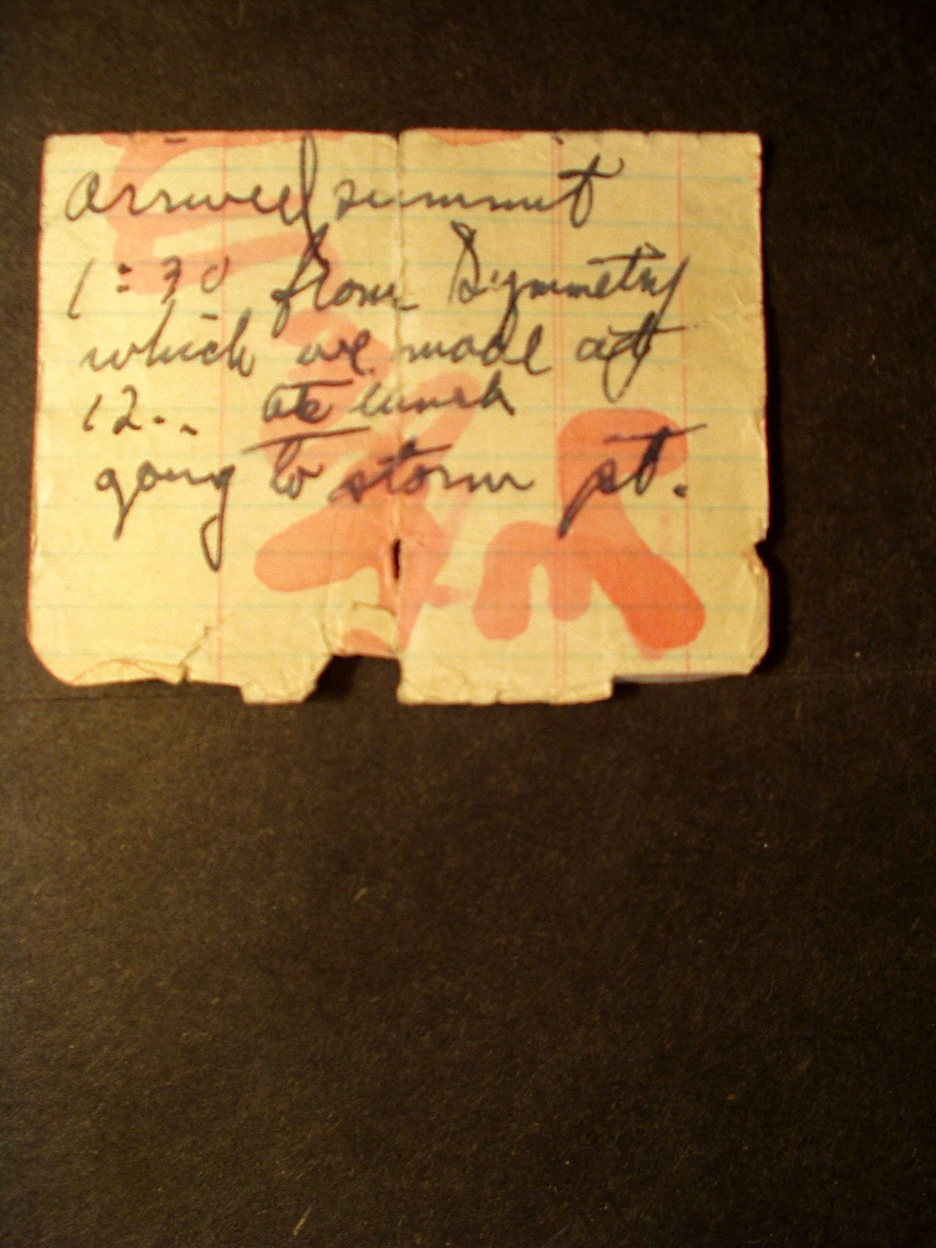 arrived summit
1:30 from Symmetry
which we made at
12.. ate lunch
going to storm pt.